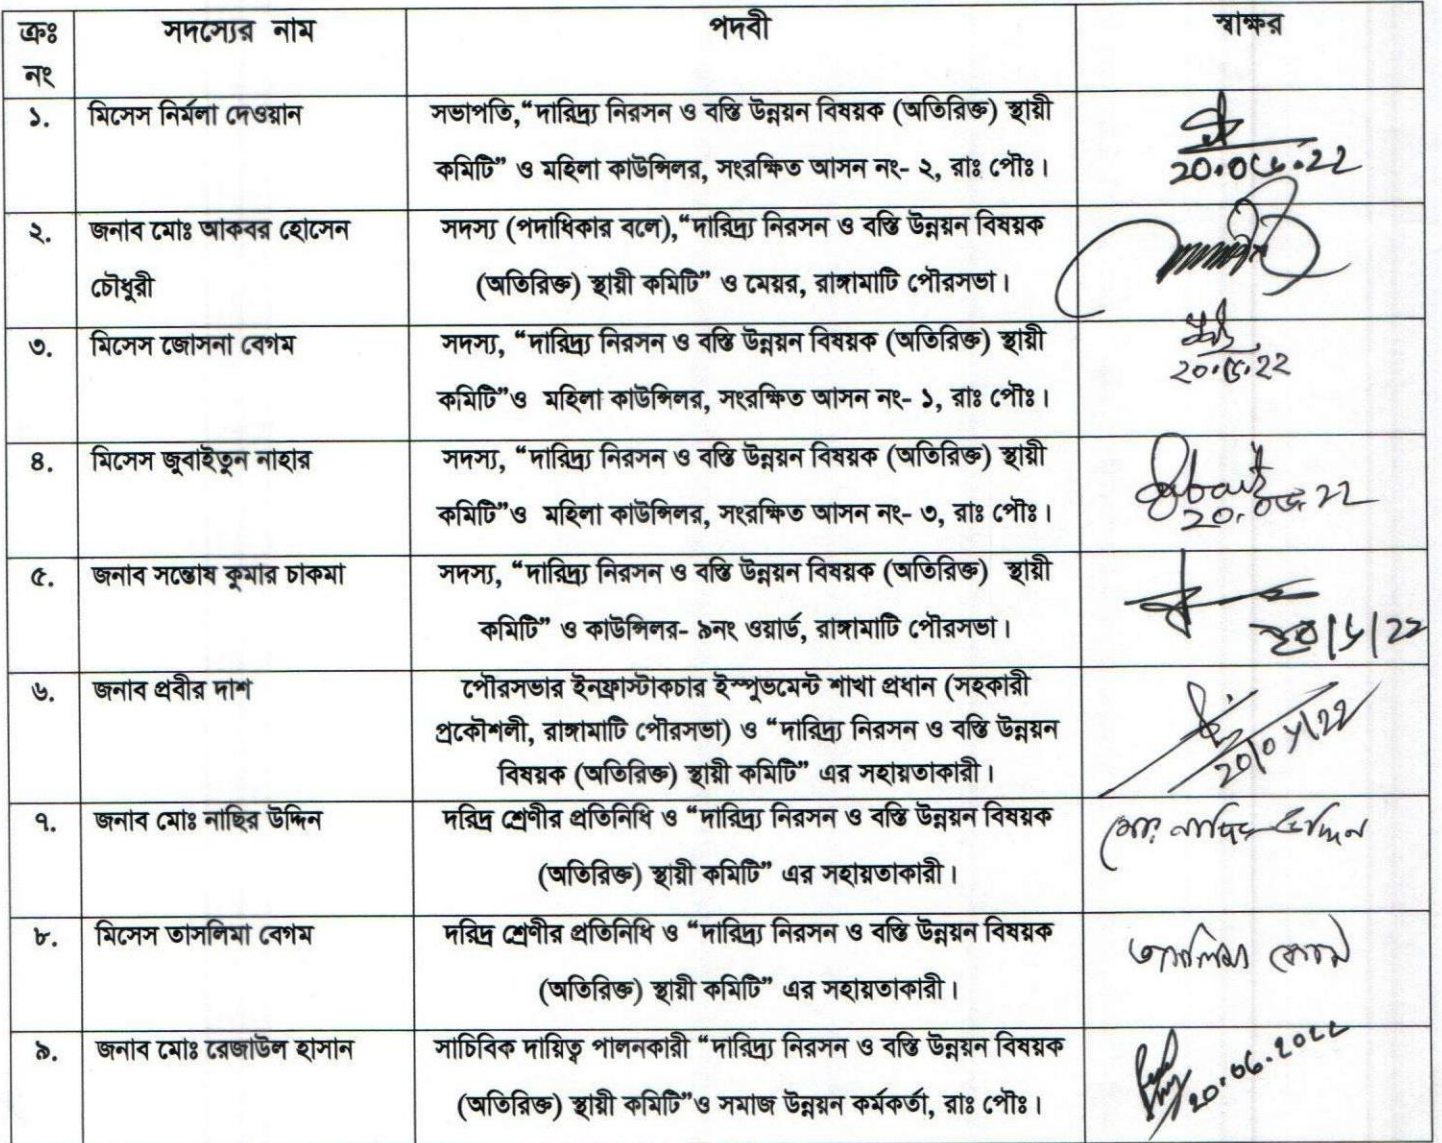 ক্রঃ নং সদস্যের নাম পদবী স্বাক্ষর
১. মিসেস নির্মলা দেওয়ান সভাপতি,“দারিদ্র্য নিরসন ও বস্তি উন্নয়ন বিষয়ক (অতিরিক্ত) স্থায়ী
কমিটি” ও মহিলা কাউন্সিলর, সংরক্ষিত আসন নং- ২, রাঃ পৌঃ।
২. জনাব মোঃ আকবর হোসেন সদস্য (পদাধিকার বলে),“দারিদ্র্য নিরসন ও বস্তি উন্নয়ন বিষয়ক
চৌধুরী (অতিরিক্ত) স্থায়ী কমিটি” ও মেয়র, রাঙ্গামাটি পৌরসভা।
৩. মিসেস জোসনা বেগম সদস্য, “দারিদ্র্য নিরসন ও বস্তি উন্নয়ন বিষয়ক (অতিরিক্ত) স্থায়ী
কমিটি”ও মহিলা কাউন্সিলর, সংরক্ষিত আসন নং- ১, রাঃ পৌঃ।
৪. মিসেস জুবাইতুন নাহার সদস্য, “দারিদ্র্য নিরসন ও বস্তি উন্নয়ন বিষয়ক (অতিরিক্ত) স্থায়ী
কমিটি”ও মহিলা কাউন্সিলর, সংরক্ষিত আসন নং- ৩, রাঃ পৌঃ।
৫. জনাব সন্তোষ কুমার চাকমা সদস্য, “দারিদ্র্য নিরসন ও বস্তি উন্নয়ন বিষয়ক (অতিরিক্ত) স্থায়ী
কমিটি” ও কাউন্সিলর- ৯নং ওয়ার্ড, রাঙ্গামাটি পৌরসভা।
৬. জনাব প্রবীর দাশ পৌরসভার ইনফ্রাস্টাকচার ইম্প্রুভমেন্ট শাখা প্রধান (সহকারী
প্রকৌশলী, রাঙ্গামাটি পৌরসভা) ও “দারিদ্র্য নিরসন ও বস্তি উন্নয়ন
বিষয়ক (অতিরিক্ত) স্থায়ী কমিটি” এর সহায়তাকারী।
৭. জনাব মোঃ নাছির উদ্দিন দরিদ্র শ্রেণীর প্রতিনিধি ও “দারিদ্র্য নিরসন ও বস্তি উন্নয়ন বিষয়ক
(অতিরিক্ত) স্থায়ী কমিটি” এর সহায়তাকারী।
৮. মিসেস তাসলিমা বেগম দরিদ্র শ্রেণীর প্রতিনিধি ও “দারিদ্র্য নিরসন ও বস্তি উন্নয়ন বিষয়ক
তাসলিমা বেগম
(অতিরিক্ত) স্থায়ী কমিটি” এর সহায়তাকারী।
৯. জনাব মোঃ রেজাউল হাসান সাচিবিক দায়িত্ব পালনকারী “দারিদ্র্য নিরসন ও বস্তি উন্নয়ন বিষয়ক
20.06.2022
(অতিরিক্ত) স্থায়ী কমিটি”ও সমাজ উন্নয়ন কর্মকর্তা, রাঃ পৌঃ।